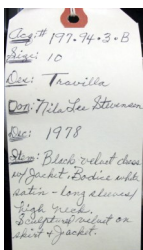 Acq:# 197.94.3.B
Size: 10
Des: Travilla
Don: Nila Lee Stevenson
Dec: 1978
Black velvet dress
w/ Jacket. Bodice white
satin - long sleeves/
high neck.
Sculptured velvet on
skirt & jacket.